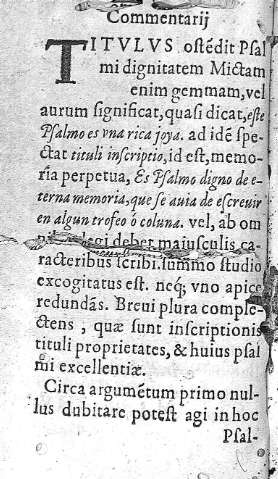 Commentarij
TITVLVS ostẽdit Psal
mi dignitatem Mictam
enim gemmam, vel
aurum significat, quasi dicat, este
Psalmo es vna rica joya. ad idẽ spe-
ctat tituli inscriptio, id est, memo-
ria perpetua, Es Psalmo digno de e-
terna memoria, que se auia de escreuir
en algun trofeo ó coluna. vel, ab om
legi debet maiusculis ca-
racteribus scribi. summo studio
excogitatus est. neq; vno apice
redundãs. Breui plura comple-
ctens, quæ sunt inscriptionis
tituli proprietates, & huius psal
mi excellentiæ.
Circa argumẽtum primo nul-
lus dubitare potest agi in hoc
Psal-